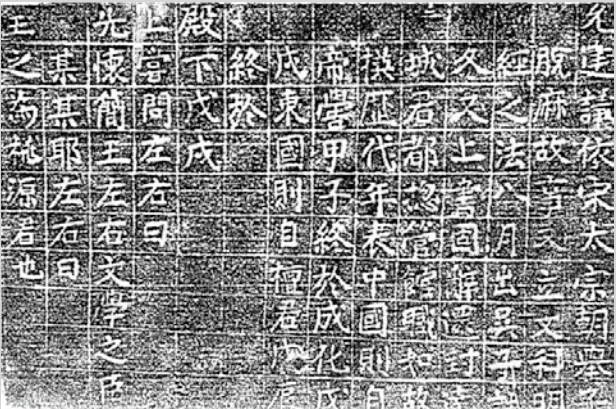 允建議依宋太宗朝舉子
脫麻故事又立文科明
經之法八月出
久又上書固辭還封達
城君都摠管餘職如故
撰歷代年表中國則自
帝嚳甲子終於成化戊
戌東國則自檀君戊辰
終於
殿下戊戌
上嘗問左右曰
先懷簡王左右文學之臣
某某耶左右曰
王之為桃源君也